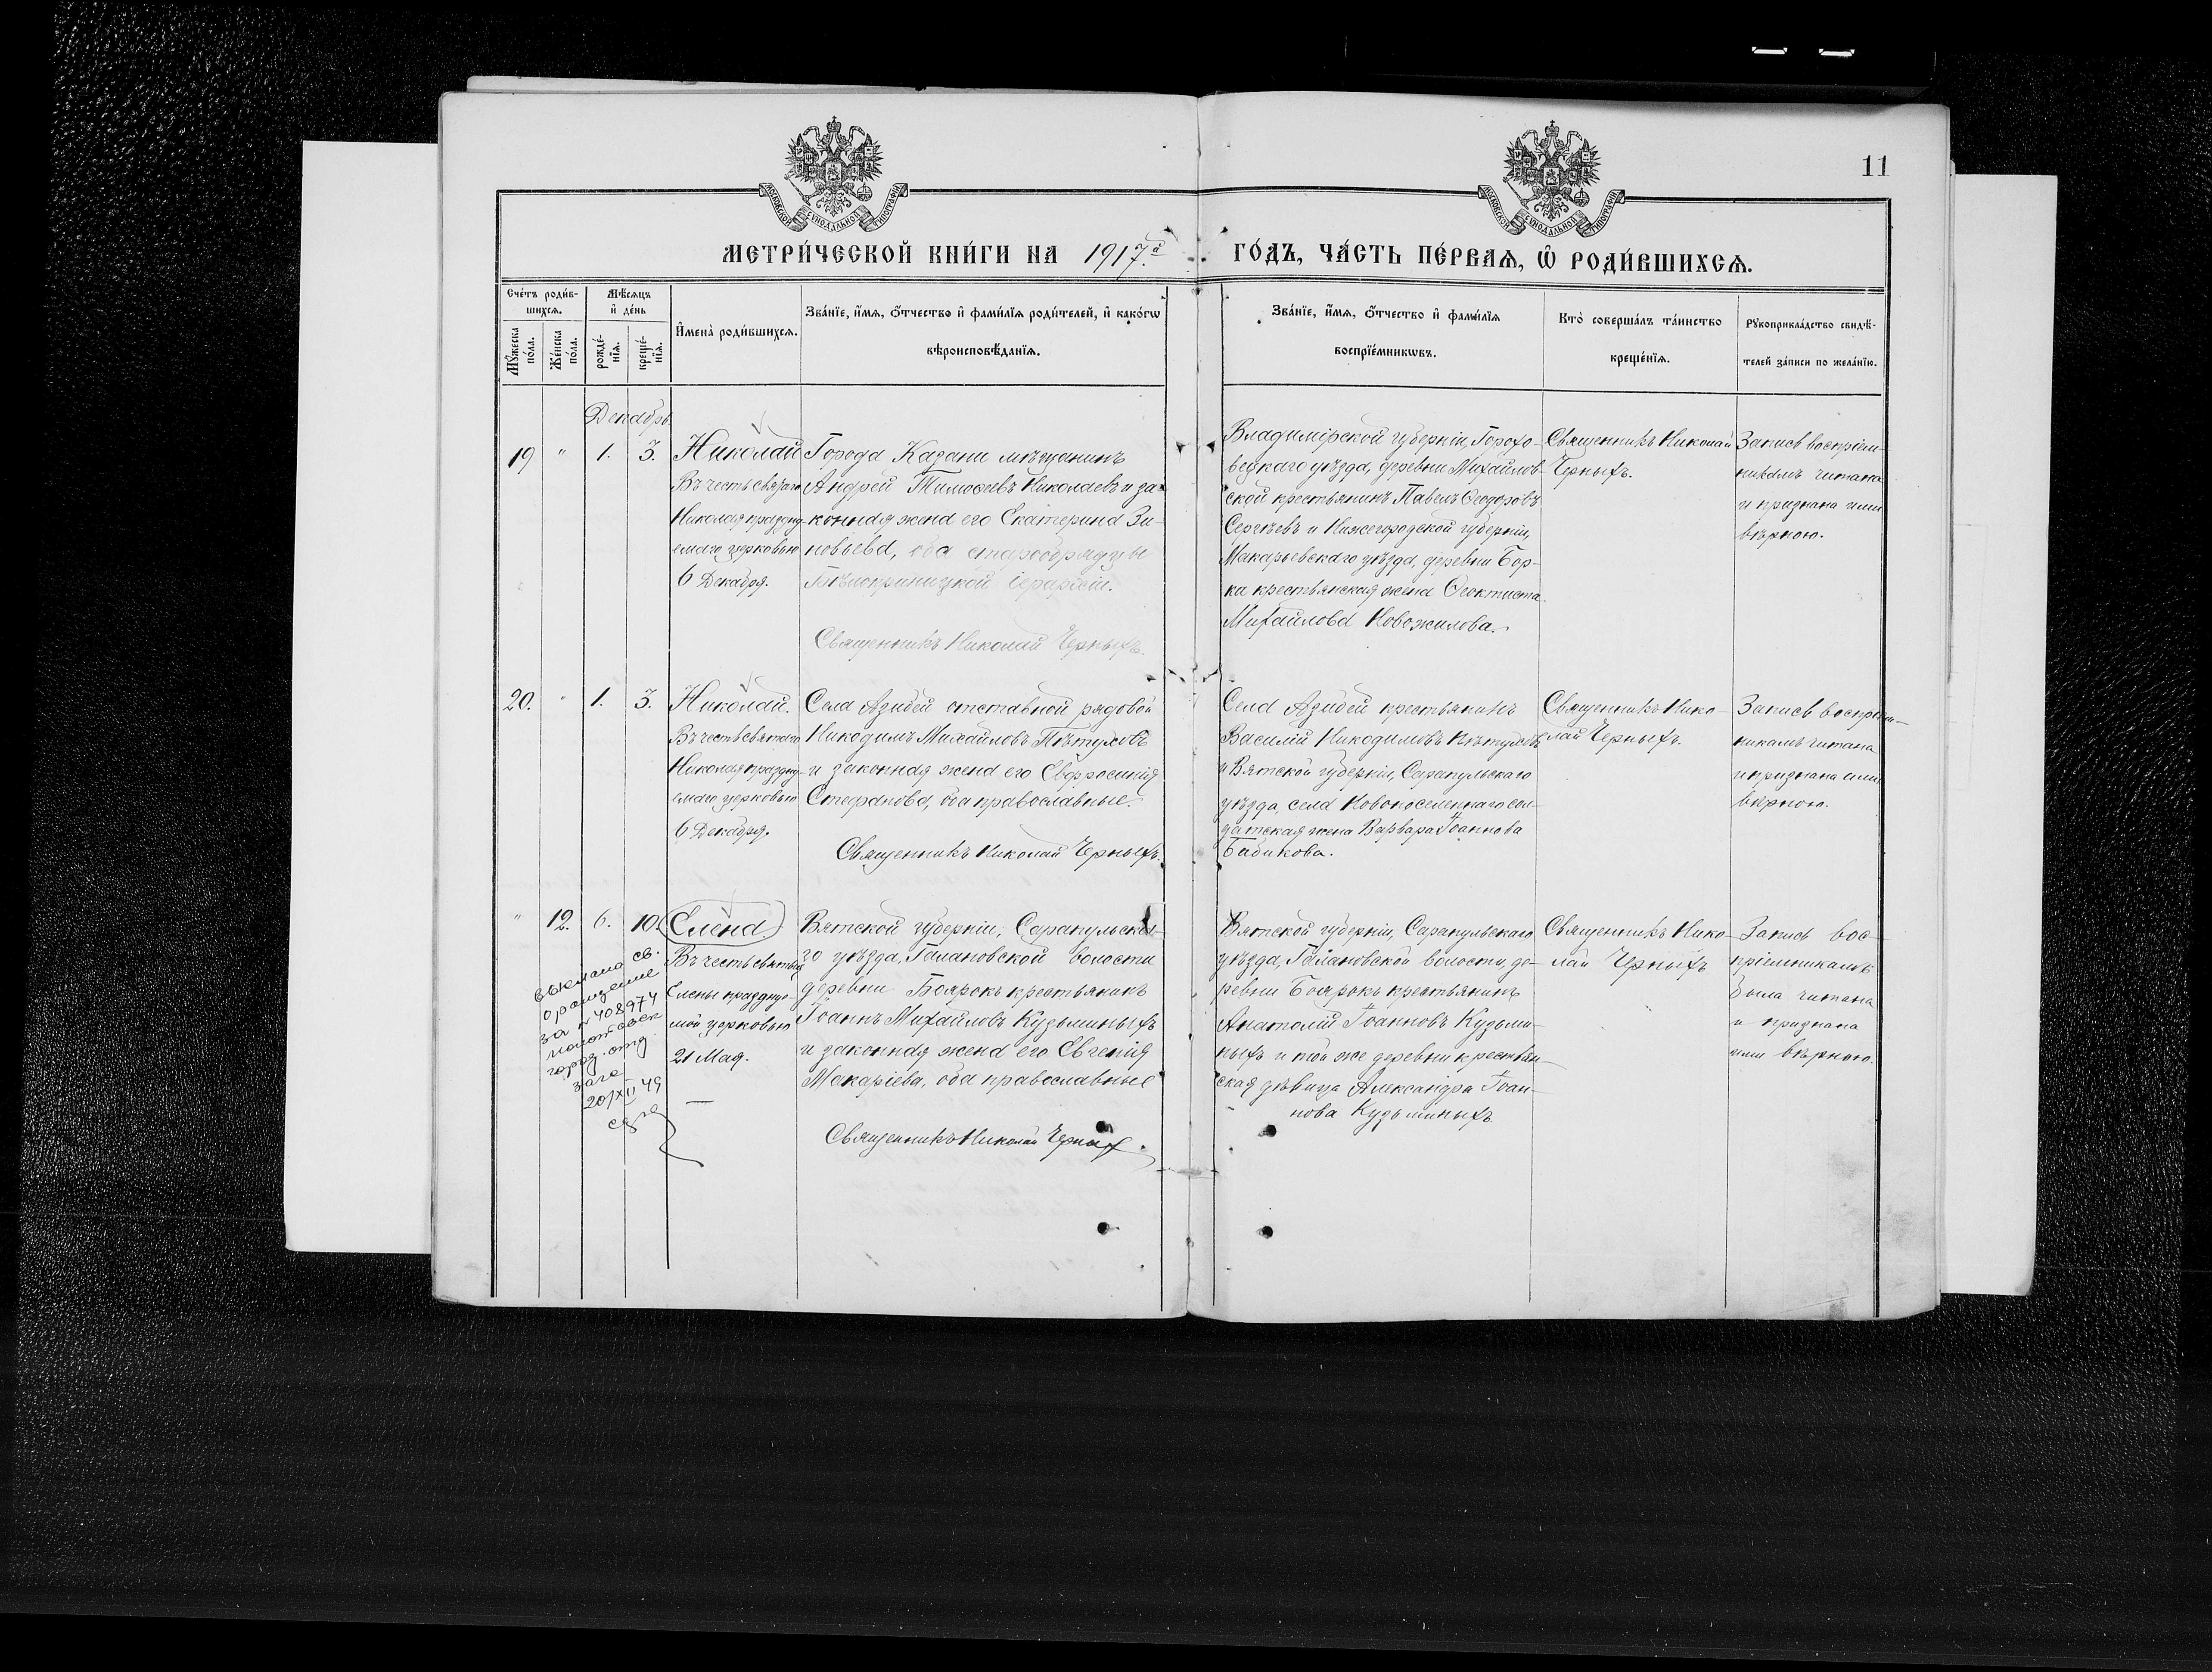 11
МОСКОВСКОЙ СѴНОДАЛЬНОЙ ТИПОГРАФІИ
МОСКОВСКОЙ СѴНОДАЛЬНОЙ ТИПОГРАФІИ
МЕТРИ́ЧЕСКОЙ КНИ́ГИ НА 1917.й ГО́ДЪ, ЧА́СТЬ ПЕ́РВАѦ, Ѡ҆ РОДИ́ВШИХСѦ.
Сче́тъ роди́в-
шихсѧ.
Мꙋ́жеска
по́ла.
Же́нска
по́ла.
Мѣ́сѧцъ
и҆ де́нь
рожде́-
нїѧ.
креще́-
нїѧ.
И҆мена̀ роди́вшихсѧ.
Зва́нїе, и҆́мѧ, ѻ҆́тчество и҆ фами́лїѧ роди́телей, и҆ како́гѡ
вѣроисповѣ́данїѧ.
Зва́нїе, и҆́мѧ, ѻ҆́тчество и҆ фами́лїѧ
воспрїе́мникѡвъ.
Кто̀ соверша́лъ та́инство
креще́нїѧ.
Рꙋкоприкла́дство свидѣ́-
телей за́писи по жела́нїю.
Декабрь.
19 " 1. 3.
Николай
Въ честь святаго
Николая праздну-
емаго церковью
6 Декабря.
Города Казани мѣщанинъ
Андрей Тимоѳеевъ Николаевъ и за-
конная жена его Екатерина Зи-
новьева, оба старообрядцы
Бѣлокриницкой іерархіи.
Священникъ Николай Черныхъ.
Владимірской губерніи, Горохо-
вецкаго уѣзда, деревни Михайлов-
ской крестьянинъ Павелъ Ѳеодоровъ
Сергѣевъ и Нижегородской губерніи,
Макарьевскаго уѣзда, деревни Бор-
ки крестьянская жена Ѳеоктиста
Михайлова Новожилова.
Священникъ Николай
Черныхъ.
Запись воспріем-
никамъ читана
и признана ими
вѣрною.
20. " 1. 3.
Николай.
Въ честь святаго
Николая праздну-
емаго церковью
6 Декабря.
Села Азибей отставной рядовой
Никодимъ Михайловъ Пѣтуховъ
и законная жена его Евфросинія
Стефанова, оба православные.
Священникъ Николай Черныхъ.
Села Азибей крестьянинъ
Василій Никодимовъ Пѣтуховъ
и Вятской губерніи, Сарапульскаго
уѣзда, села Новопоселеннаго сол-
датская жена Варвара Іоаннова
Бабикова.
Священникъ Нико-
лай Черныхъ.
Запись воспріем-
никамъ читана
и признана ими
вѣрною.
" 12. 6. 10.
Елена.
Въ честь святыя
Елены праздnуе-
мой церковью
21 Мая.
Вятской губерніи, Сарапульска-
го уѣзда, Галановской волости
деревни Боярокъ крестьянинъ
Іоаннъ Михайловъ Кузьминыхъ
и законная жена его Евгенія
Макаріева, оба православные
Священникъ Николай Черныхъ.
Вятской губерніи, Сарапульскаго
уѣзда, Галановской волости, де-
ревни Боярокъ крестьянинъ
Анатолій Іоанновъ Кузьми-
ныхъ и той же деревни крестьян-
ская дѣвица Александра Іоан-
нова Кузьминыхъ.
Священникъ Нико-
лай Черныхъ
Запись вос-
пріемникамъ
была читана
и признана
ими вѣрною.
выслано св.
о рождение
за № 408974
молотовск
город. отд
загс
20/XII 49